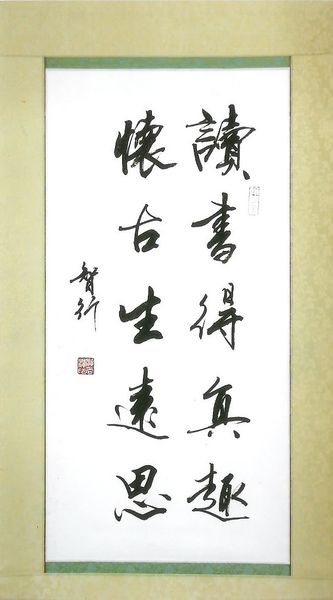 讀書得真趣
懷古生遠思
智行